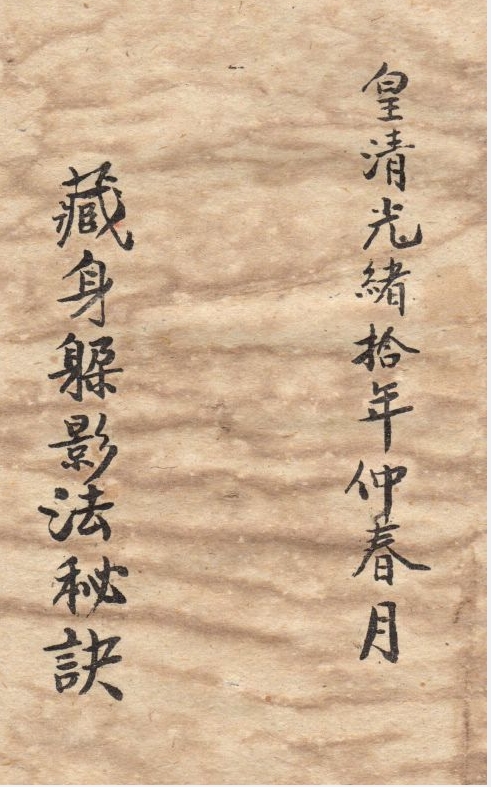 皇清光緒拾年仲春月
藏身躲影法秘訣